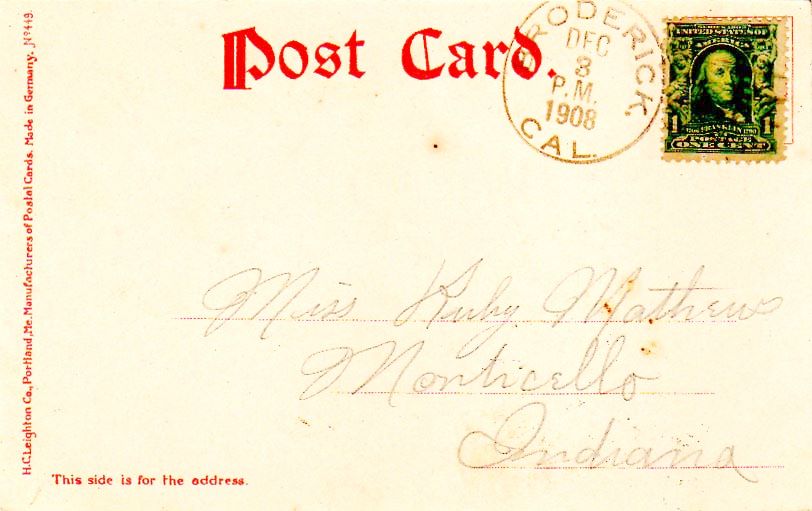 Post Card.
BRODERICK,
DEC
3
P.M.
1908
CAL.
SERIES 1902
UNITED STATES OF
AMERICA
1706 FRANKLIN 1790
1 1
POSTAGE
ONE CENT
Miss Ruby Mathews
Monticello
Indiana
This side is for the address.
H.C. Leighton Co., Portland, Me. Manufacturers of Postal Cards. Made in Germany. Nº 449.